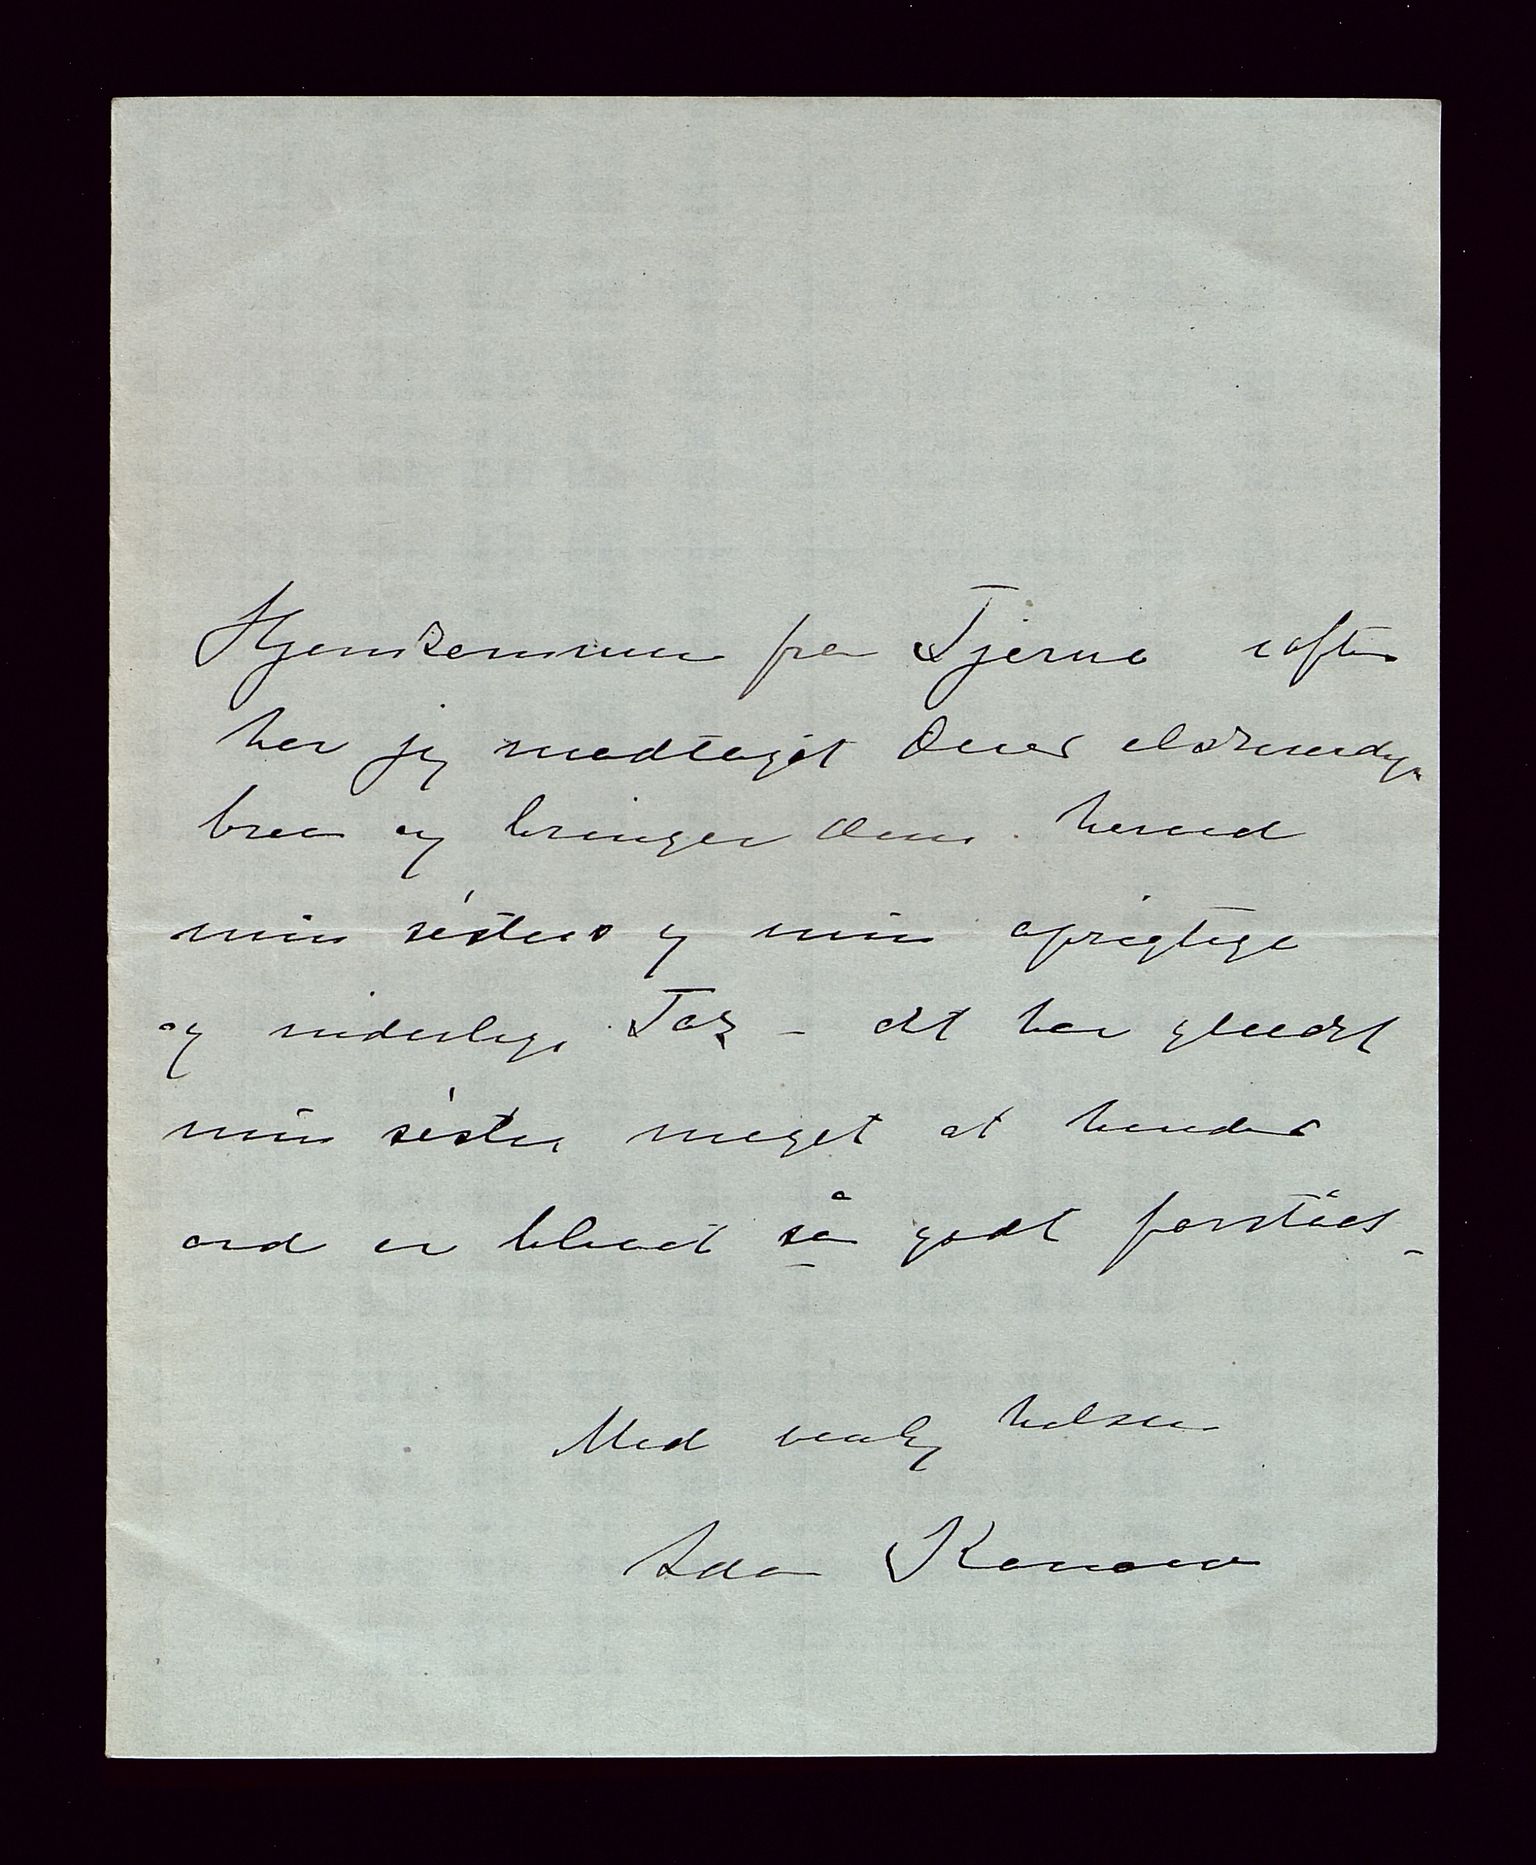 Hjemkommen fra Tjernø iaften
har jeg modtaget Deres elskverdige
brev og bringer Dem herved
min sisters og min oprigtige
og inderlige Tak – det har glædet
min sister meget at hendes
ord er blevet så godt forstået –
Med venlig hilsen
Ida Konow